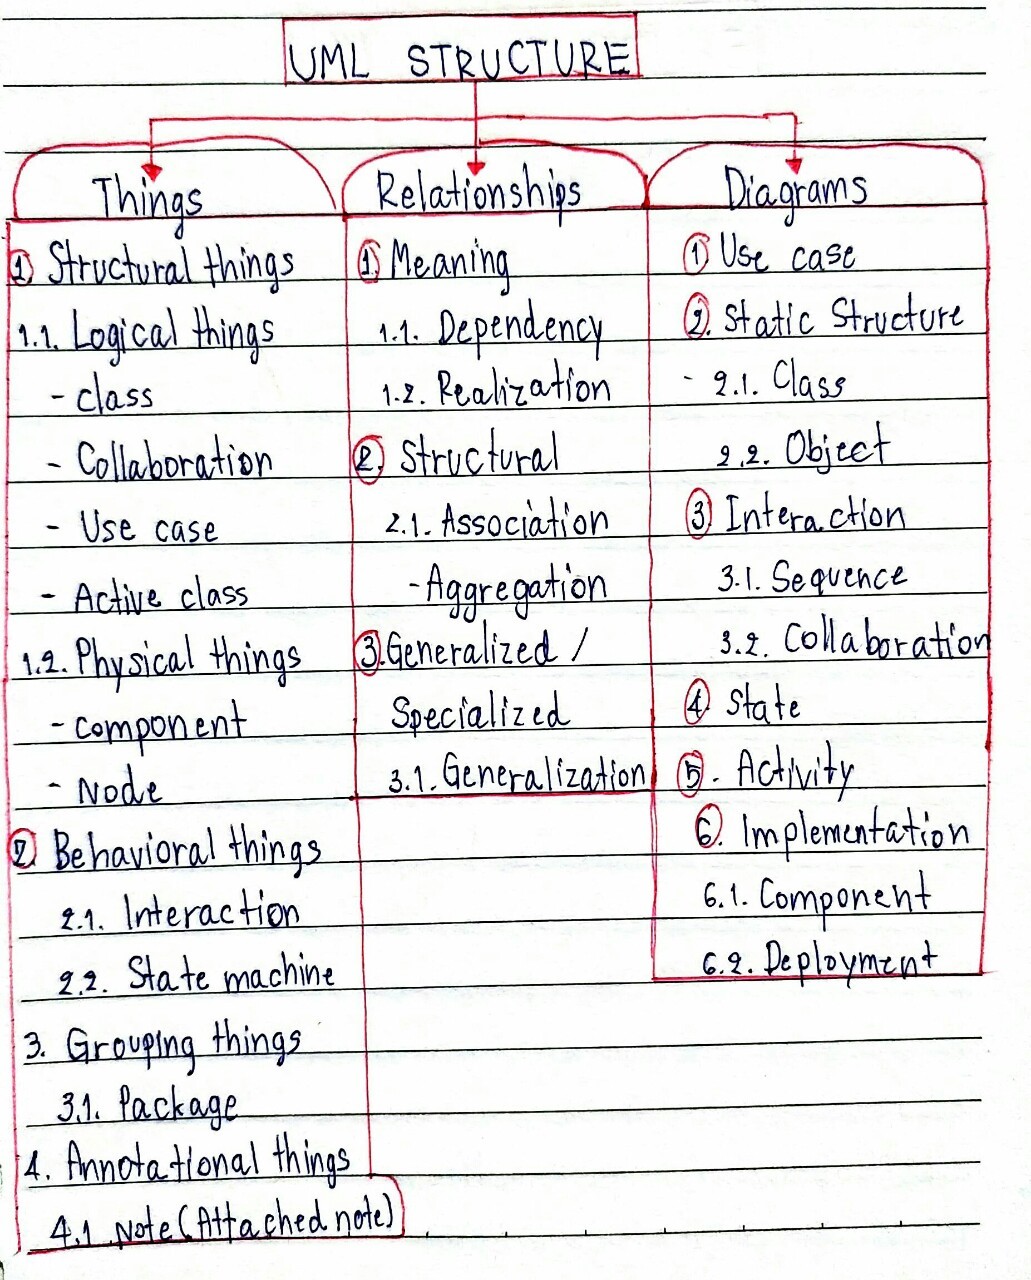 UML STRUCTURE
Things
① Structural things
1.1. Logical things
- class
- Collaboration
- Use case
- Active class
1.2. Physical things
- component
- Node
② Behavioral things
2.1. Interaction
2.2. State machine
3. Grouping things
3.1. Package
4. Annotational things
4.1 Note (Attached note)
Relationships
① Meaning
1.1. Dependency
1.2. Realization
②. Structural
2.1. Association
- Aggregation
③. Generalized /
Specialized
3.1. Generalization
Diagrams
① Use case
②. Static Structure
- 2.1. Class
2.2. Object
③ Interaction
3.1. Sequence
3.2. Collaboration
④ State
⑤. Activity
⑥. Implementation
6.1. Component
6.2. Deployment